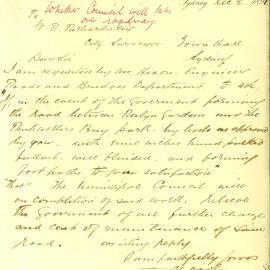 Sydney Dec 8
Whether Council will take
To over roadway.
W. D. Richards Esq
City Surveyor Town Hall
Sydney
Dear Sir
I am requested by Mr. Engineer
Roads and Bridges Department to ask
"If in the event of the Government forming
the Road between Roslyn Gardens and the
Rushcutters Bay Park. my levels as approved
by you. with nine inches hand packed
ballast, well blinded. and forming
foot paths to your satisfaction"
"That" The Municipal Council will
on completion of said work. relieve
the Government of all further charge
and cost of maintenance of same
Road. awaiting reply
I am faithfully yours